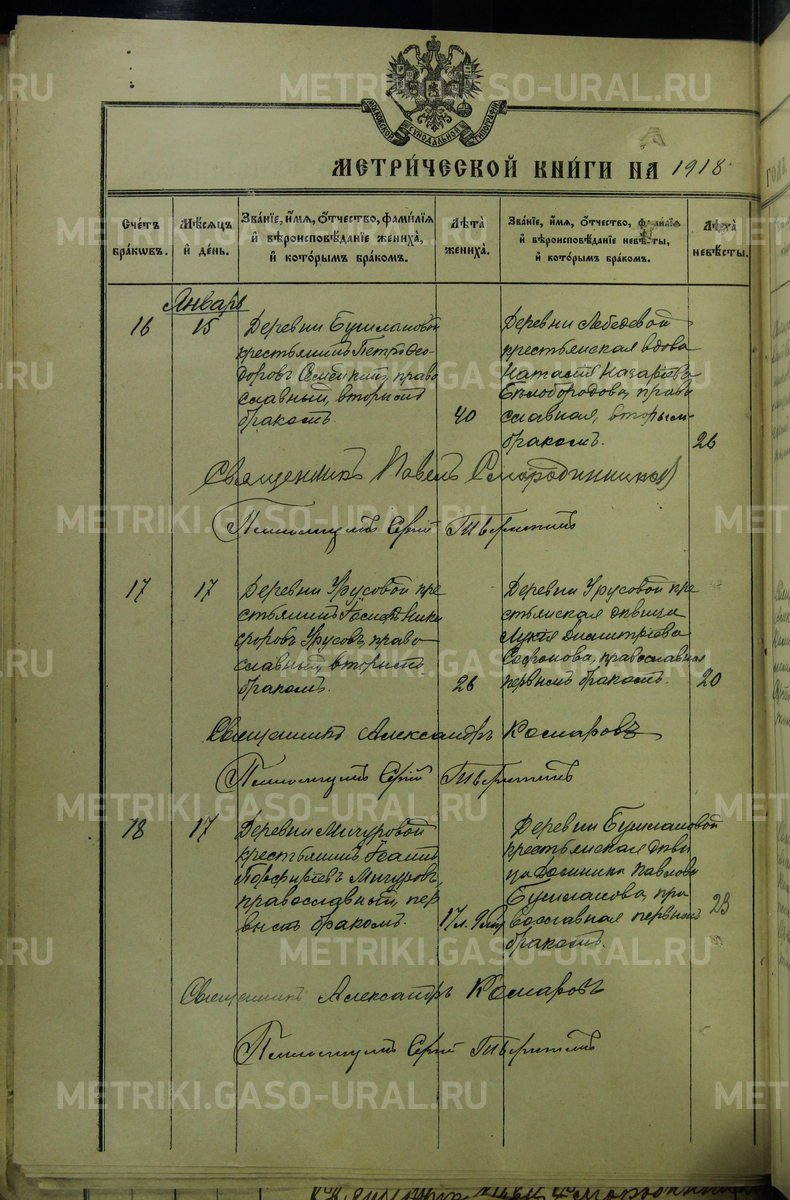 МОСКОВСКОЙ СѴНОДАЛЬНОЙ ТИПОГРАФІИ
МЕТРИ́ЧЕСКОЙ КНИ́ГИ НА 1918
Сче́тъ бра́ковъ.
Мѣ́сяцъ и́ де́нь.
Зва́нїе, и́мѧ, ѻ́тчество, фами́лїѧ и́ вѣроисповѣ́данїе жениха́, и́ кото́рымъ бра́комъ.
Лѣ́та жениха́.
Зва́нїе, и́мѧ, ѻ́тчество, фами́лїѧ и́ вѣроисповѣ́данїе невѣ́сты, и́ кото́рымъ бра́комъ.
Лѣ́та невѣ́сты.
Январь
16
15
Деревни Бушлановой
крестьянинъ Петръ Ѳео-
доровъ право
славный, вторымъ
бракомъ.
40
Деревни Лебедевой
крестьянская вдова
Назарова
Бѣлобородова, право
славная, вторым
бракомъ.
26
Священникъ Павелъ Смородинников
Псаломщикъ Сергій
17
17
Деревни Урусовой кре
стьянинъ Іосифъ Ники
форовъ Урусовъ, право
славный, вторымъ
бракомъ.
26
Деревни Урусовой кре
стьянская дѣвица
Лукія Димитріева
Сафронова, православная
первымъ бракомъ.
20
Священникъ Александръ Комаровъ
Псаломщикъ Сергій
18
17
Деревни Мичуровой
крестьянинъ Іоаннъ
Порфирьевъ Мичуровъ,
православный, пер
вымъ бракомъ.
17 л. 9 м.
Деревни Бушлановой
крестьянская дѣви
ца Домника Павлова
Бушланова, пра
вославная первымъ
бракомъ.
23
Священникъ Александръ Комаровъ
Псаломщикъ Сергій
METRIKI.GASO-URAL.RU